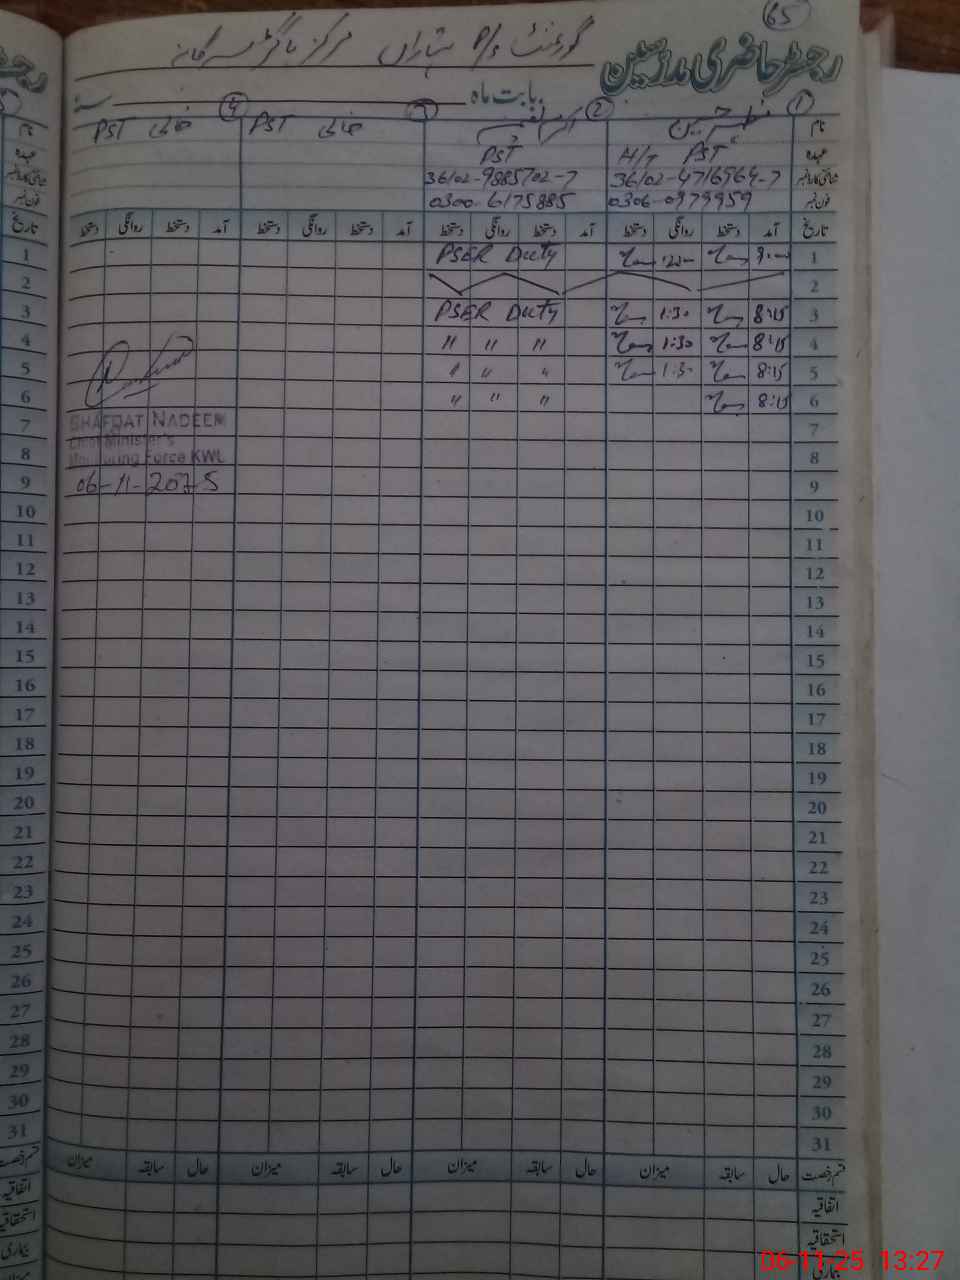 65
گورنمنٹ P/S
مرکز
رجسٹر حاضری مدرسین
بابت ماہ
سنہ
نام 1 2 3 4
خالی PST خالی PST
عہدہ H/T PST PST
شناختی کارڈ نمبر 36102-4716964-7 36102-9885702-7
فون نمبر 0306-0979959 0300-6175885
تاریخ آمد دستخط روانگی دستخط آمد دستخط روانگی دستخط آمد دستخط روانگی دستخط آمد دستخط روانگی دستخط
1 PSER Duty
2
3 8:15 1:30 PSER Duty
4 8:15 1:30 " " "
5 8:15 1:30 " " "
6 8:15 " " "
7
8
9
10
11
12
13
14
15
16
17
18
19
20
21
22
23
24
25
26
27
28
29
30
31
SHAFQAT NADEEM
Chief Minister's
Monitoring Force KWL
06-11-2025
قسم رخصت حال سابقہ میزان حال سابقہ میزان حال سابقہ میزان حال سابقہ میزان
اتفاقیہ
استحقاقیہ
بیماری
06-11-25 13:27